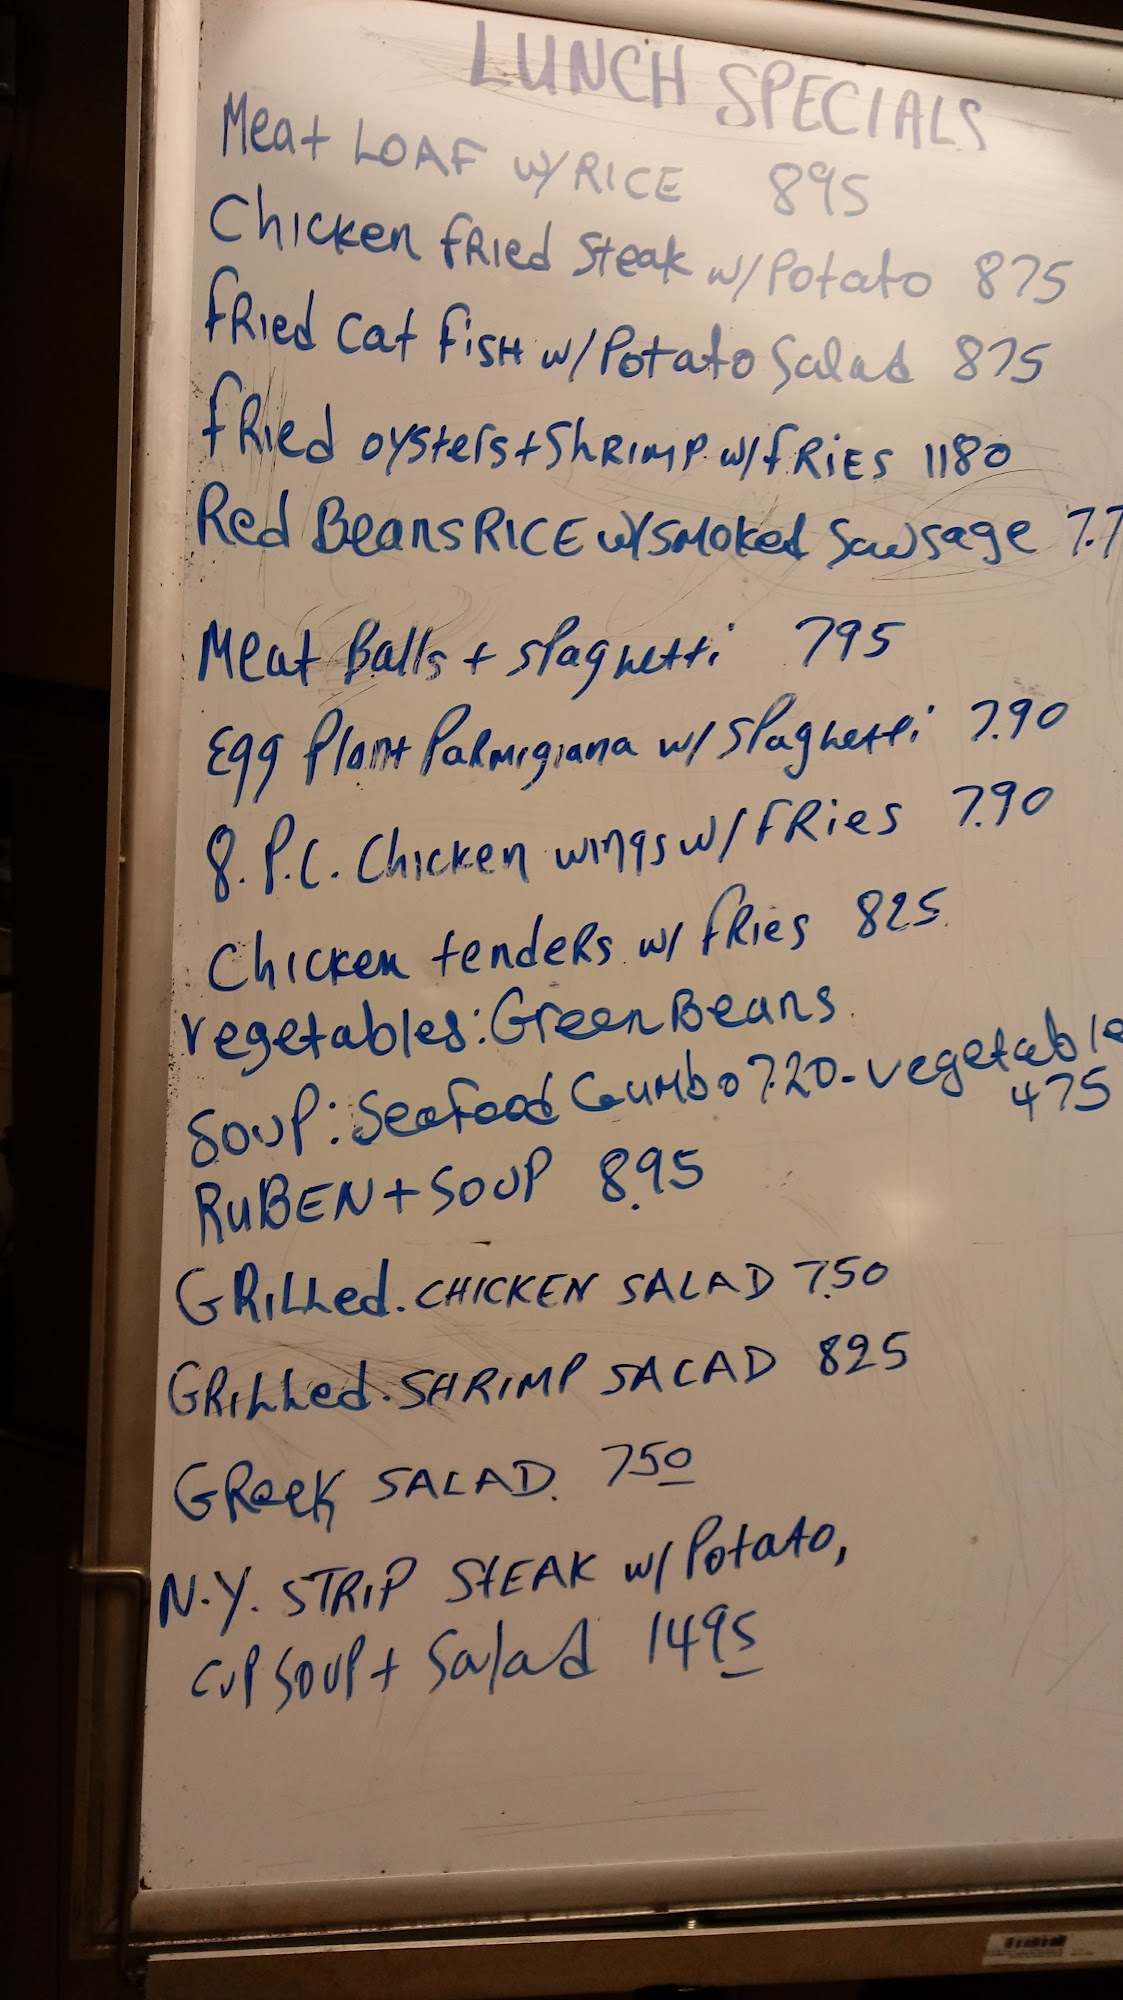 LUNCH SPECIALS
Meat LOAF w/RICE 895
Chicken fRied Steak w/Potato 875
fRied Cat fisH w/Potato Salad 875
fRied oysters+ShRIMP w/fRiES 1180
Red BeansRICE w/SMoked Sawsage 7.7
Meat Balls + spaghetti 795
Egg Plant PaRmigiana w/ SPaghetti 7.90
8. P.C. Chicken wings w/ FRies 7.90
Chicken tendeRs w/ fRies 825
vegetables: GreenBeans
SOUP: Seafood Gumbo 7.20 - vegetable
475
RuBEN + SOUP 8.95
GRiLLed. CHICKEN SALAD 7.50
GRiLLed. SHRIMP SACAD 825
GReek SALAD. 750
N.Y. STRIP StEAK w/ Potato,
CUP SOUP + Salad 1495